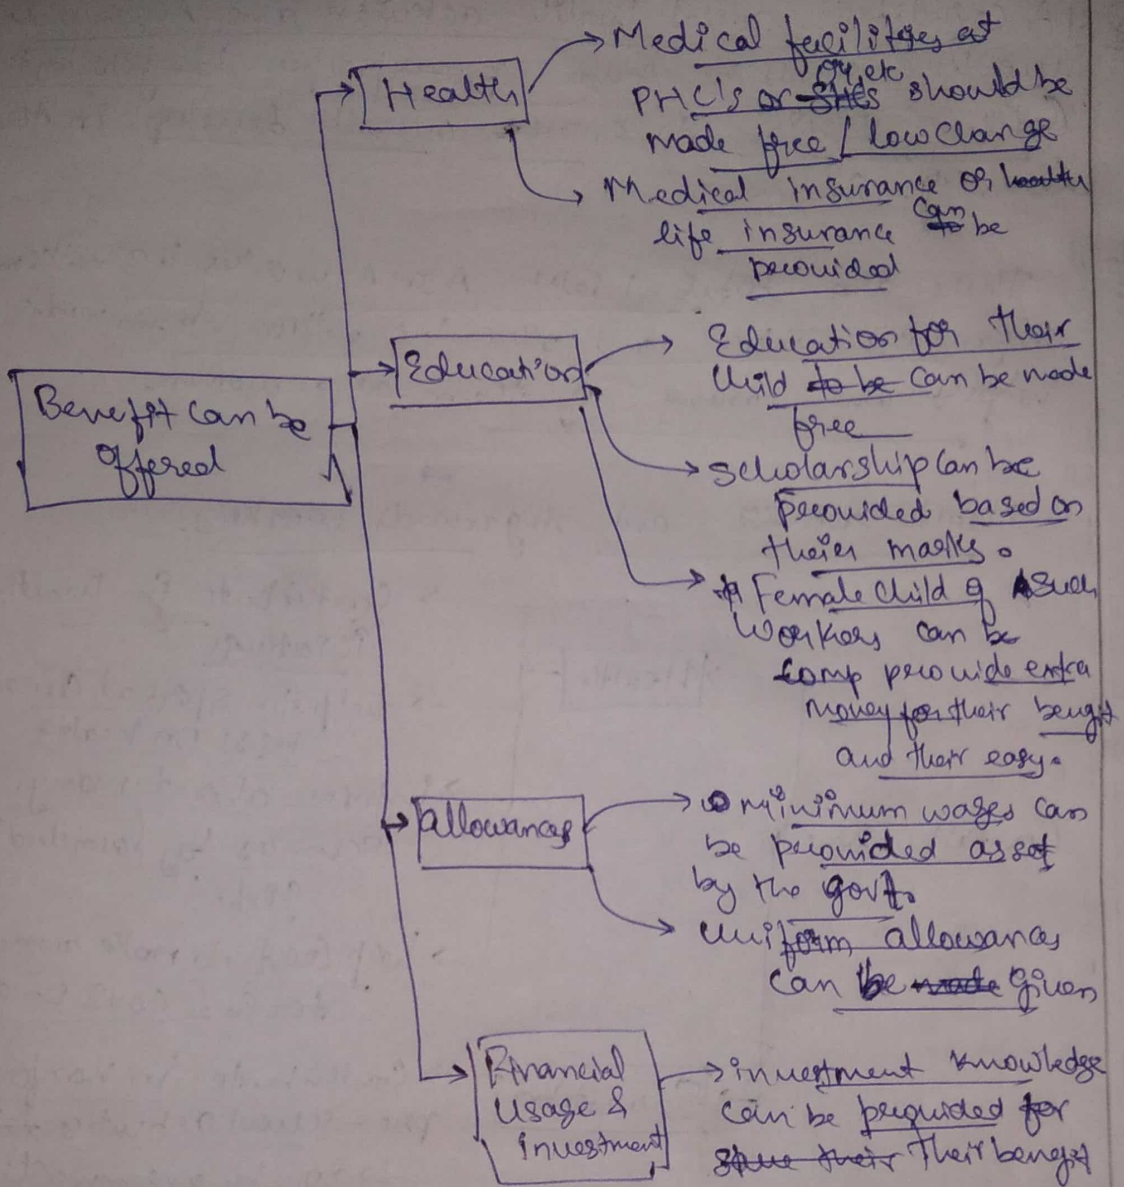 Health
Medical facilities at
PHC's or GH, etc should be
made free / low change
Medical insurance or health
life insurance can be
provided
Benefit can be
offered
Education
Education for their
child to be can be made
free
scholarship can be
provided based on
their marks.
Female child of such
workers can be
comp provide extra
money for their benefit
and their easy.
allowances
minimum wages can
be provided as set
by the govt.
uniform allowances
can be made given
Financial
Usage &
investment
investment knowledge
can be provided for
their their benefit